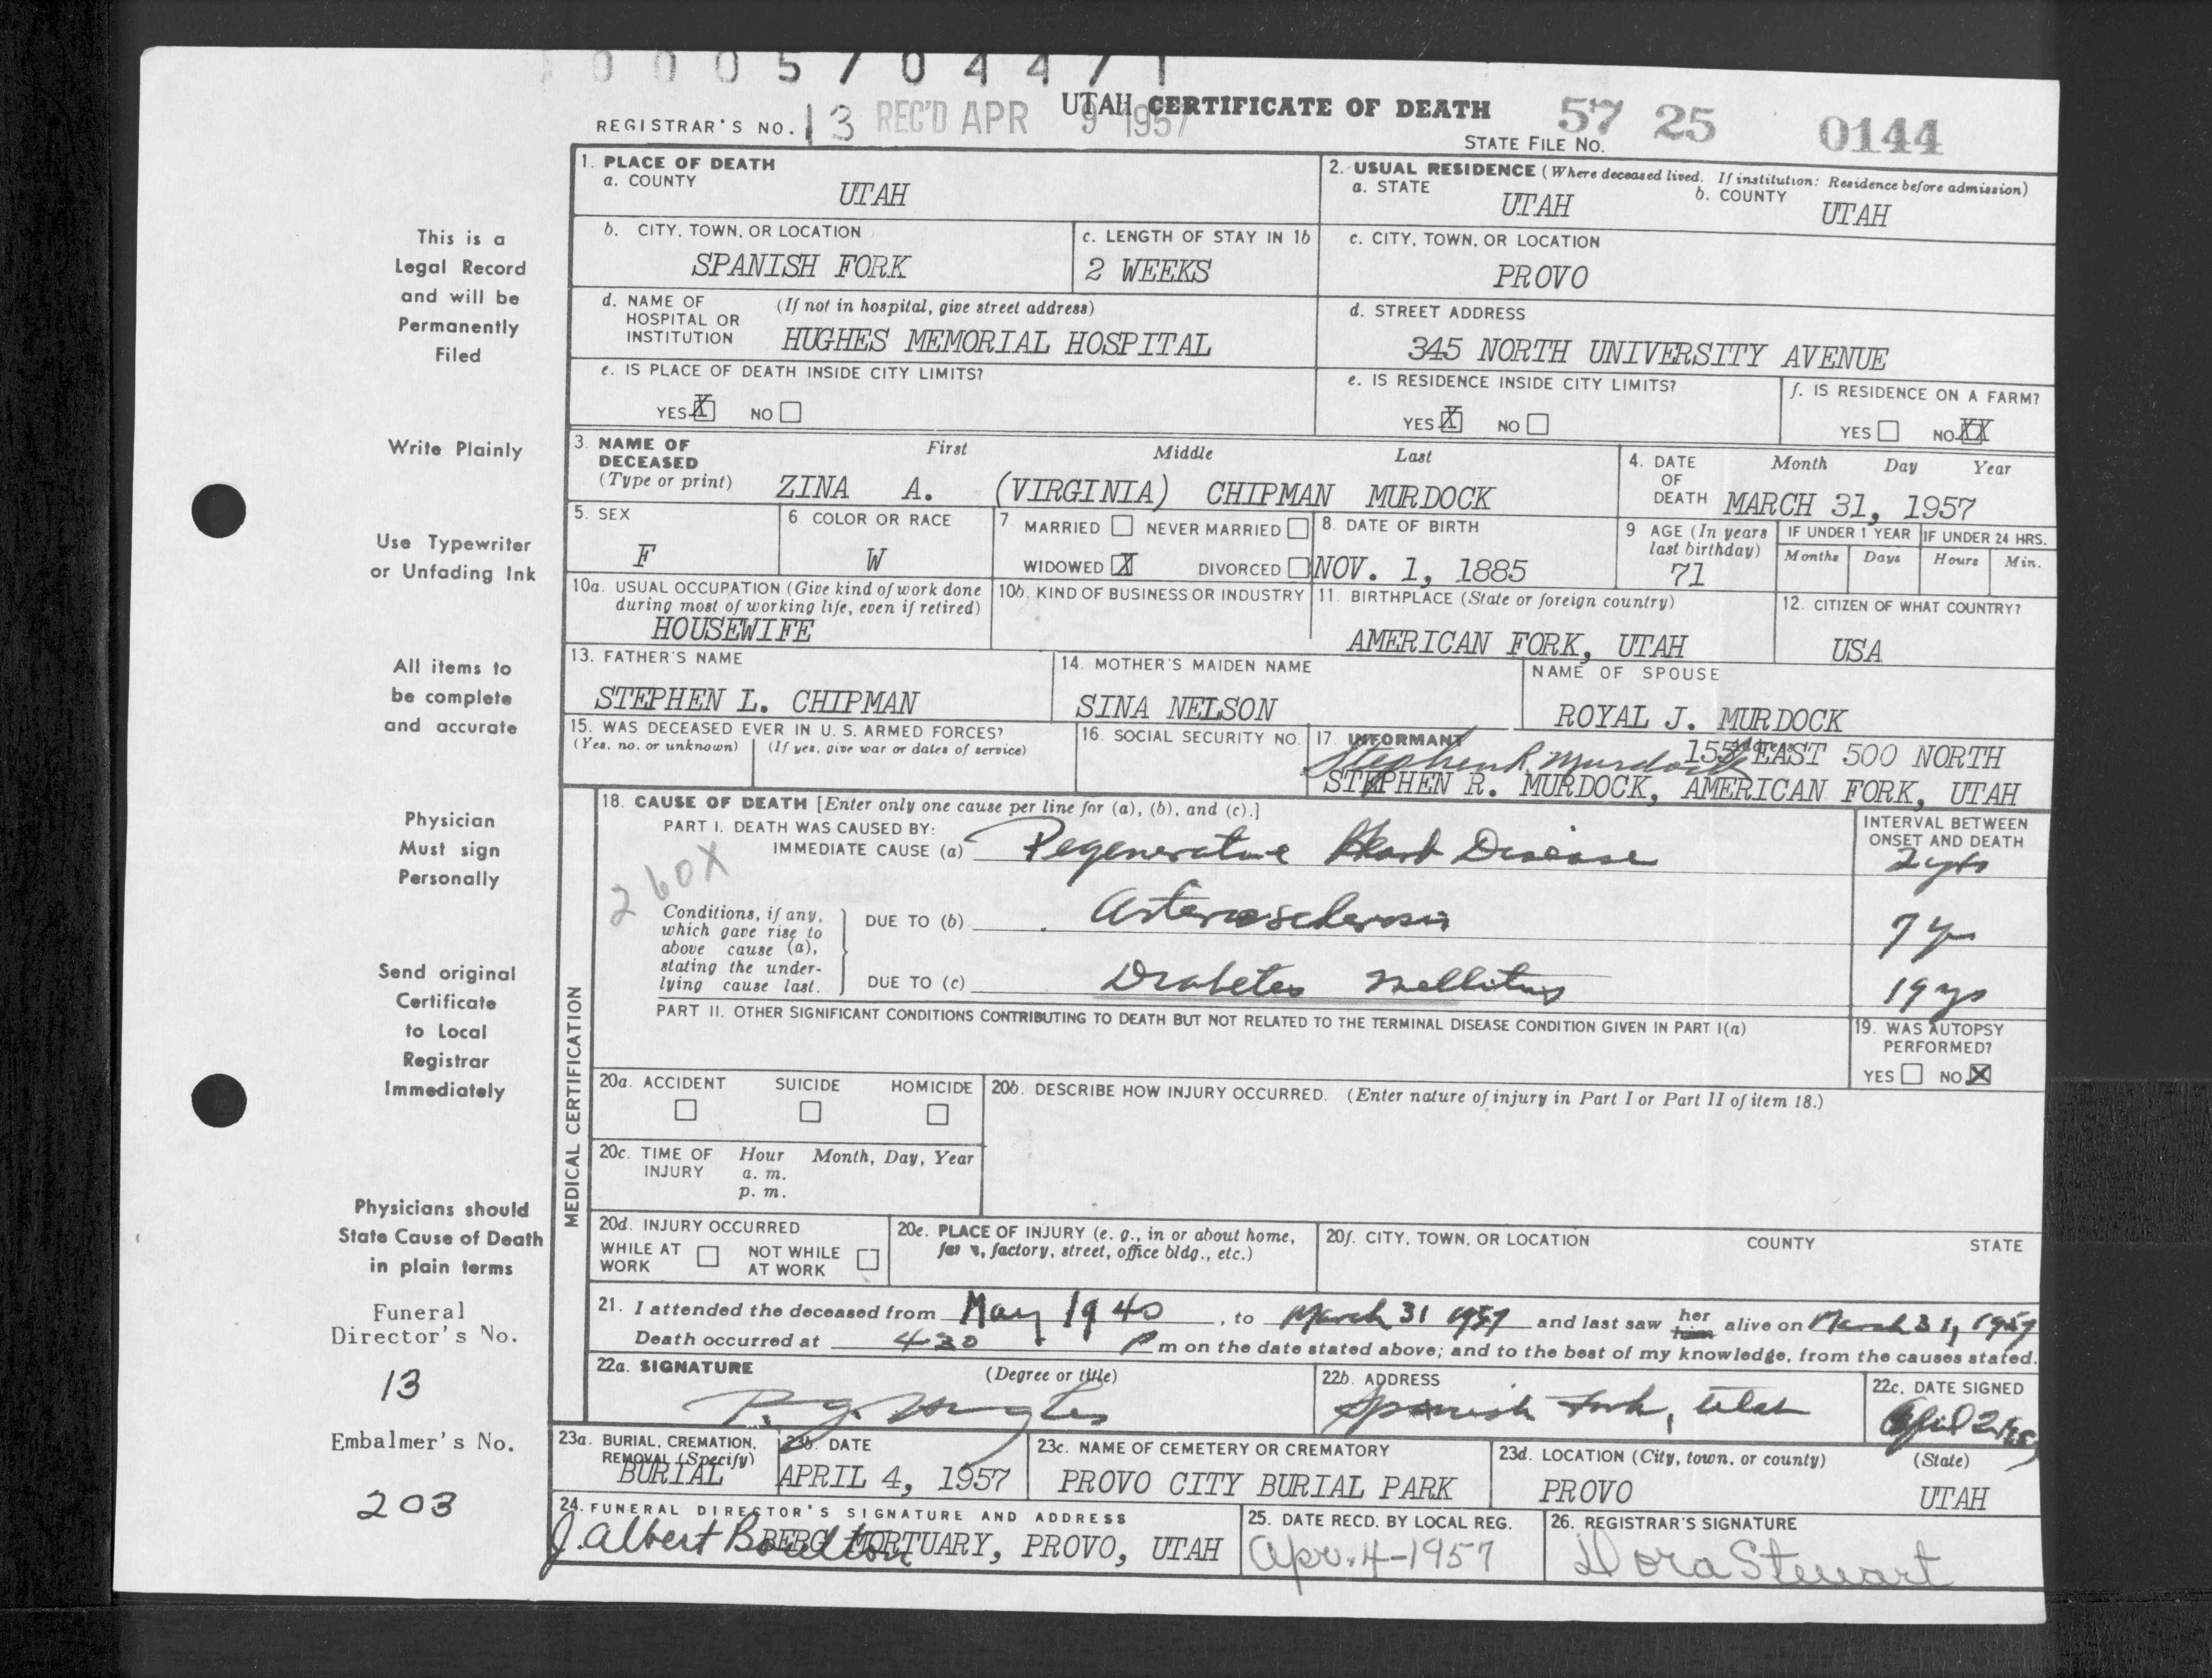 0005704471
UTAH CERTIFICATE OF DEATH
REGISTRAR'S NO. 13 REC'D APR 9 1957
STATE FILE NO. 57 25 0144
This is a
Legal Record
and will be
Permanently
Filed
Write Plainly
Use Typewriter
or Unfading Ink
All items to
be complete
and accurate
Physician
Must sign
Personally
Send original
Certificate
to Local
Registrar
Immediately
Physicians should
State Cause of Death
in plain terms
Funeral
Director's No.
13
Embalmer's No.
203
1. PLACE OF DEATH
a. COUNTY
UTAH
2. USUAL RESIDENCE (Where deceased lived. If institution: Residence before admission)
a. STATE
UTAH
b. COUNTY
UTAH
b. CITY, TOWN, OR LOCATION
SPANISH FORK
c. LENGTH OF STAY IN 1b
2 WEEKS
c. CITY, TOWN, OR LOCATION
PROVO
d. NAME OF HOSPITAL OR INSTITUTION (If not in hospital, give street address)
HUGHES MEMORIAL HOSPITAL
d. STREET ADDRESS
345 NORTH UNIVERSITY AVENUE
e. IS PLACE OF DEATH INSIDE CITY LIMITS?
YES X NO
e. IS RESIDENCE INSIDE CITY LIMITS?
YES X NO
f. IS RESIDENCE ON A FARM?
YES NO XX
3. NAME OF DECEASED (Type or print)
First Middle Last
ZINA A. (VIRGINIA) CHIPMAN MURDOCK
4. DATE OF DEATH
Month Day Year
MARCH 31, 1957
5. SEX
F
6 COLOR OR RACE
W
7. MARRIED NEVER MARRIED
WIDOWED X DIVORCED
8. DATE OF BIRTH
NOV. 1, 1885
9 AGE (In years last birthday)
71
IF UNDER 1 YEAR
Months Days
IF UNDER 24 HRS.
Hours Min.
10a. USUAL OCCUPATION (Give kind of work done during most of working life, even if retired)
HOUSEWIFE
10b. KIND OF BUSINESS OR INDUSTRY
11. BIRTHPLACE (State or foreign country)
AMERICAN FORK, UTAH
12. CITIZEN OF WHAT COUNTRY?
USA
13. FATHER'S NAME
STEPHEN L. CHIPMAN
14. MOTHER'S MAIDEN NAME
SINA NELSON
NAME OF SPOUSE
ROYAL J. MURDOCK
15. WAS DECEASED EVER IN U. S. ARMED FORCES?
(Yes, no, or unknown) (If yes, give war or dates of service)
16. SOCIAL SECURITY NO.
17. INFORMANT Address
Stephen R. Murdock
155 EAST 500 NORTH
STEPHEN R. MURDOCK, AMERICAN FORK, UTAH
MEDICAL CERTIFICATION
18. CAUSE OF DEATH [Enter only one cause per line for (a), (b), and (c).]
PART I. DEATH WAS CAUSED BY:
IMMEDIATE CAUSE (a) Degenerative Heart Disease
INTERVAL BETWEEN ONSET AND DEATH
2 yrs
260X
Conditions, if any, which gave rise to above cause (a), stating the underlying cause last.
DUE TO (b) Arteriosclerosis
7 yr
DUE TO (c) Diabetes mellitus
19 yrs
PART II. OTHER SIGNIFICANT CONDITIONS CONTRIBUTING TO DEATH BUT NOT RELATED TO THE TERMINAL DISEASE CONDITION GIVEN IN PART I(a)
19. WAS AUTOPSY PERFORMED?
YES NO X
20a. ACCIDENT SUICIDE HOMICIDE
20b. DESCRIBE HOW INJURY OCCURRED. (Enter nature of injury in Part I or Part II of item 18.)
20c. TIME OF INJURY
Hour Month, Day, Year
a. m.
p. m.
20d. INJURY OCCURRED
WHILE AT WORK NOT WHILE AT WORK
20e. PLACE OF INJURY (e. g., in or about home, farm, factory, street, office bldg., etc.)
20f. CITY, TOWN, OR LOCATION COUNTY STATE
21. I attended the deceased from May 1940, to March 31 1957 and last saw her him alive on March 31, 1957
Death occurred at 4 30 P m on the date stated above; and to the best of my knowledge, from the causes stated.
22a. SIGNATURE (Degree or title)
Hughes
22b. ADDRESS
Spanish Fork, Utah
22c. DATE SIGNED
April 2 1957
23a. BURIAL, CREMATION, REMOVAL (Specify)
BURIAL
23b. DATE
APRIL 4, 1957
23c. NAME OF CEMETERY OR CREMATORY
PROVO CITY BURIAL PARK
23d. LOCATION (City, town, or county) (State)
PROVO UTAH
24. FUNERAL DIRECTOR'S SIGNATURE AND ADDRESS
J. Albert Boulton
BERG MORTUARY, PROVO, UTAH
25. DATE RECD. BY LOCAL REG.
Apr. 4-1957
26. REGISTRAR'S SIGNATURE
Dora Stewart